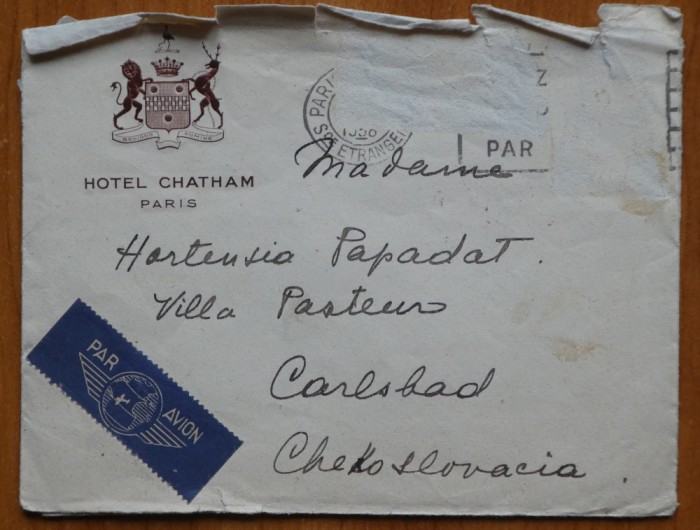 HOTEL CHATHAM
PARIS
PARI
ETRANGER
PAR
Madame
Hortensia Papadat.
Villa Pasteur
Carlsbad
Chekoslovacia.
PAR AVION